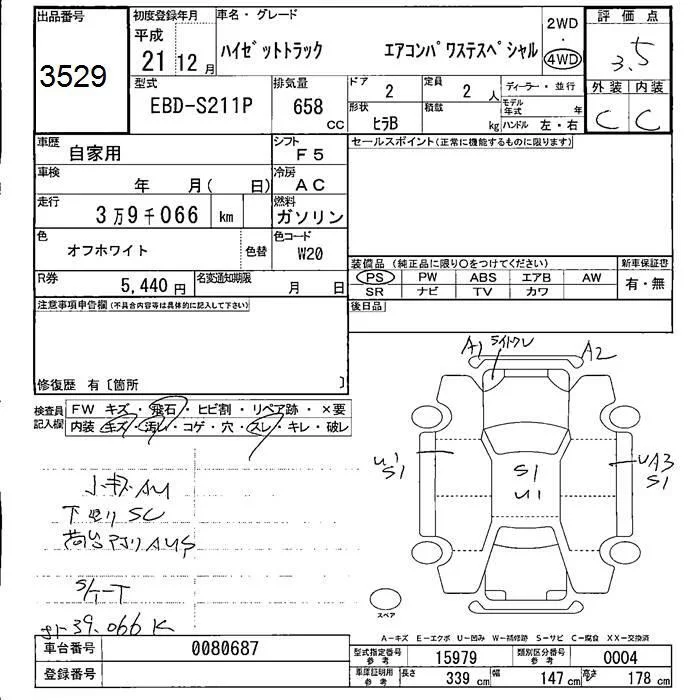 出品番号
3529
初度登録年月
平成
21 12 月
車名・グレード
ハイゼットトラック エアコンパワステスペシャル
2WD
4WD
評価点
3.5
外装 内装
C C
型式
EBD-S211P
排気量
658
CC
ドア
2
定員
2 人
ディーラー・並行
形状
ヒラB
積載
kg
モデル年式
年
ハンドル 左・右
車歴
自家用
シフト
F5
セールスポイント(正常に機能するものに限ります)
車検
年 月( 日)
冷房
AC
走行
3万9千066 km
燃料
ガソリン
色
オフホワイト
色替
色コード
W20
装備品(純正品に限り○をつけてください)
新車保証書
PS PW ABS エアB AW
有・無
SR ナビ TV カワ
R券
5,440 円
名変通知期限
月 日
後日品
注意事項申告欄(不具合内容等は具体的に記入して下さい)
修復歴 有〔箇所 〕
検査員記入欄
FW キズ・飛石・ヒビ割・リペア跡・×要
内装 キズ・汚レ・コゲ・穴・スレ・キレ・破レ
A1 ライトクレ A2
U1
S1
S1
U1
UA3
S1
小キズAU
下廻りSC
S/T-T
39.066K
スペア
A-キズ E-エクボ U-凹み W-補修跡 S-サビ C-腐食 XX-交換済
車台番号
0080687
登録番号
型式指定番号
参考
15979
類別区分番号
参考
0004
車庫証明用
参考
長さ 339 cm 幅 147 cm 高さ 178 cm